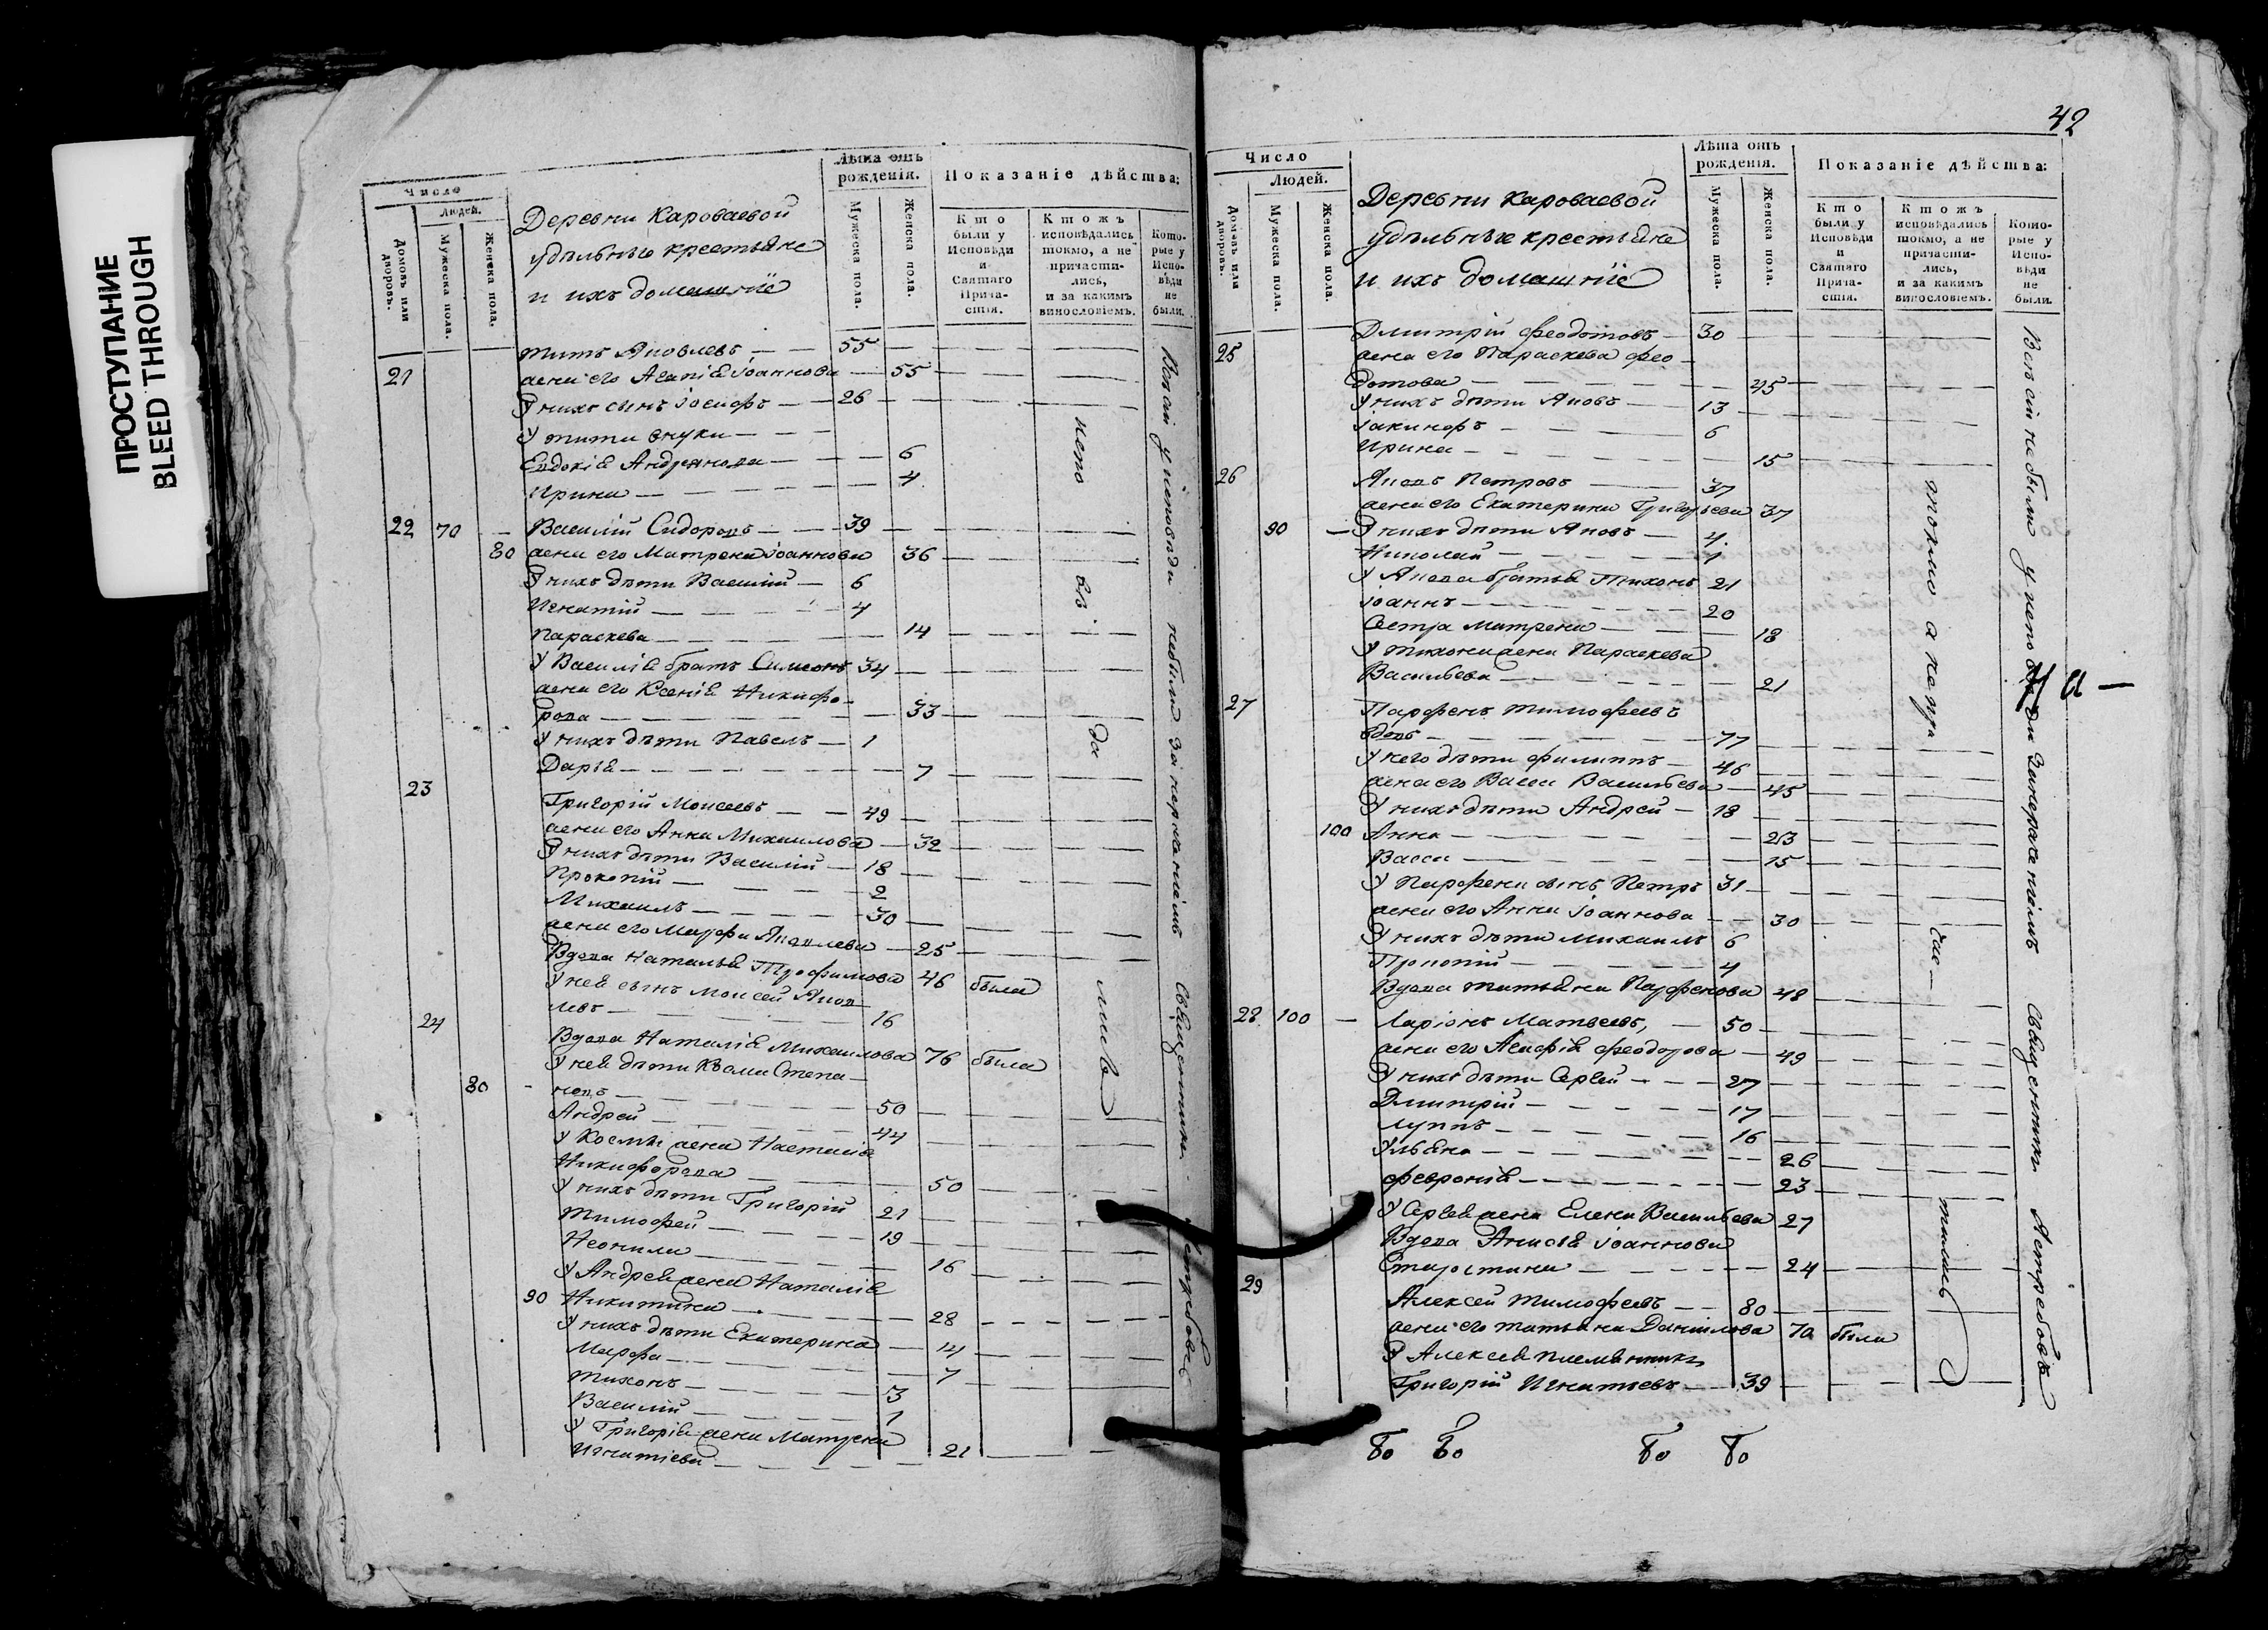 ПРОСТУПАНИЕ
BLEED THROUGH
Число
Людей.
Домовъ или дворовъ.
Мужеска пола.
Женска пола.
Деревни Короваевой
удѣльные крестьяне
и ихъ домашніе
Лѣта отъ рожденія.
Мужеска пола.
Женска пола.
Показаніе дѣйства:
Кто были у Исповѣди и Святаго Прича-стія.
Ктожъ исповѣдались токмо, а не причасти-лись, и за какимъ винословіемъ.
Кото-рые у Испо-вѣди не были.
21 Титъ Яковлевъ 55
жена его Агапія Іоаннова 55
У нихъ сынъ Іосифъ 26
У Тита внуки
Евдокія Андреянова 6
Ирина 4
22 70 Василий Сидоровъ 39
80 жена его Матрена Іоаннова 36
У нихъ дѣти Василий 6
Игнатій 4
Параскева 14
У Василія братъ Симеонъ 34
жена его Ксенія Никифо-
рова 33
У нихъ дѣти Павелъ 1
Дарья 7
23
Григорій Моисеевъ 49
жена его Анна Михаилова 32
У нихъ дѣти Василий 18
Прокопій 2
Михаилъ 30
жена его Марфа Яковлева 25
Вдова Наталья Трофимова 46 была
У нея сынъ Моисей Яков
левъ 16
24
Вдова Наталія Михаилова 76 была
У нея дѣти Козма Степа-
80 новъ 50
Андрей 44
У Космы жена Настасія
Никифорова 50
У нихъ дѣти Григорій 21
Тимофей 19
Неонила 16
У Андрея жена Наталія
90 Никитина 28
У нихъ дѣти Екатерина 14
Марфа 7
Тихонъ 3
Василий 1
У Григорія жена Матрена
Игнатіева 21
Всѣ сіи у исповѣди небыли за нерачениемъ Священникъ Ястребовъ
42
Число
Людей.
Домовъ или дворовъ.
Мужеска пола.
Женска пола.
Деревни Короваевой
удѣльные крестьяне
и ихъ домашніе
Лѣта отъ рожденія.
Мужеска пола.
Женска пола.
Показаніе дѣйства:
Кто были у Исповѣди и Святаго Прича-стія.
Ктожъ исповѣдались токмо, а не причасти-лись, и за какимъ винословіемъ.
Кото-рые у Испо-вѣди не были.
25 Дмитрій Феодотовъ 30
жена его Параскева Фео
дотова 45
У нихъ дѣти Яковъ 13
Іакинфъ 6
Ирина 15
26 Яковъ Петровъ 37
жена его Екатерина Григорьева 37
90 У нихъ дѣти Яковъ 4
Николай 1
У Якова братья Тихонъ 21
Іоаннъ 20
Сестра Матрена 18
У Тихона жена Параскева
Васильева 21
27 Парфенъ Тимофеевъ
вдовъ 77
У него дѣти Филиппъ 46
жена его Васса Васильева 45
У нихъ дѣти Андрей 18
100 Анна 23
Васса 15
У Парфена сынъ Петръ 31
жена его Анна Іоаннова 30
У нихъ дѣти Михаилъ 6
Прокопій 4
Вдова Татьяна Парфенова 48
28 100 Ларіонъ Матвеевъ, 50
жена его Агафія Феодорова 49
У нихъ дѣти Сергей 27
Дмитрій 17
Луппъ 16
Ульяна 26
Февронія 23
У Сергея жена Елена Васильева 27
Вдова Анисья Іоаннова
Старостина 24
29
Алексей Тимофеевъ 80
жена его Татьяна Данилова 70 была
У Алексея племянникъ
Григорій Игнатьевъ 39
Всѣ сіи не были у исповѣди за нерачениемъ Священникъ Ястребовъ